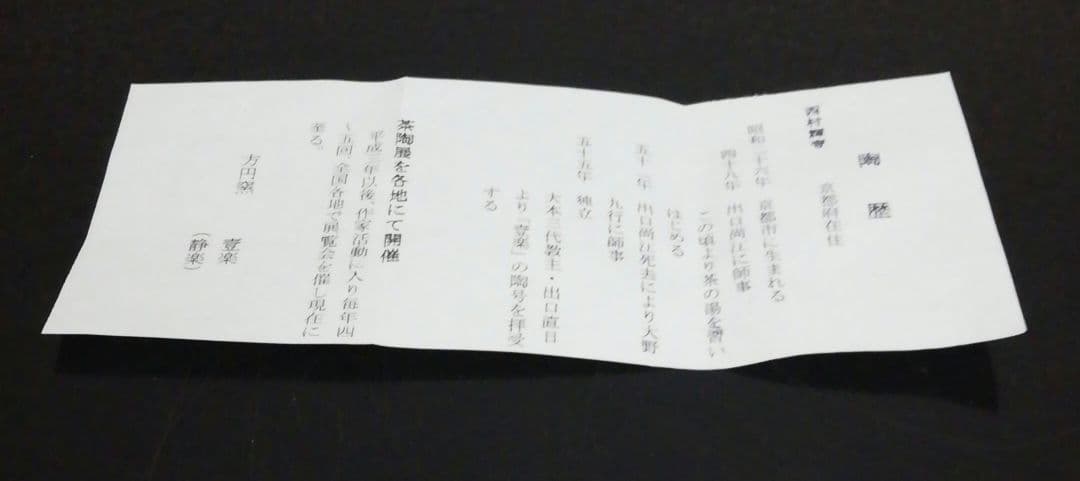 陶歴
西村輝 京都府在住
昭和二十六年 京都市に生まれる
四十八年 出口尚江に師事
この頃より茶の湯を習い
はじめる
五十二年 出口尚江死去により大野
九行に師事
五十五年 独立
大本三代教主・出口直日
より『壹楽』の陶号を拝受
する
茶陶展を各地にて開催
平成三年以後、作家活動に入り毎年四
〜五回、全国各地で展覧会を催し現在に
至る。
方円窯 壹楽
(静楽)